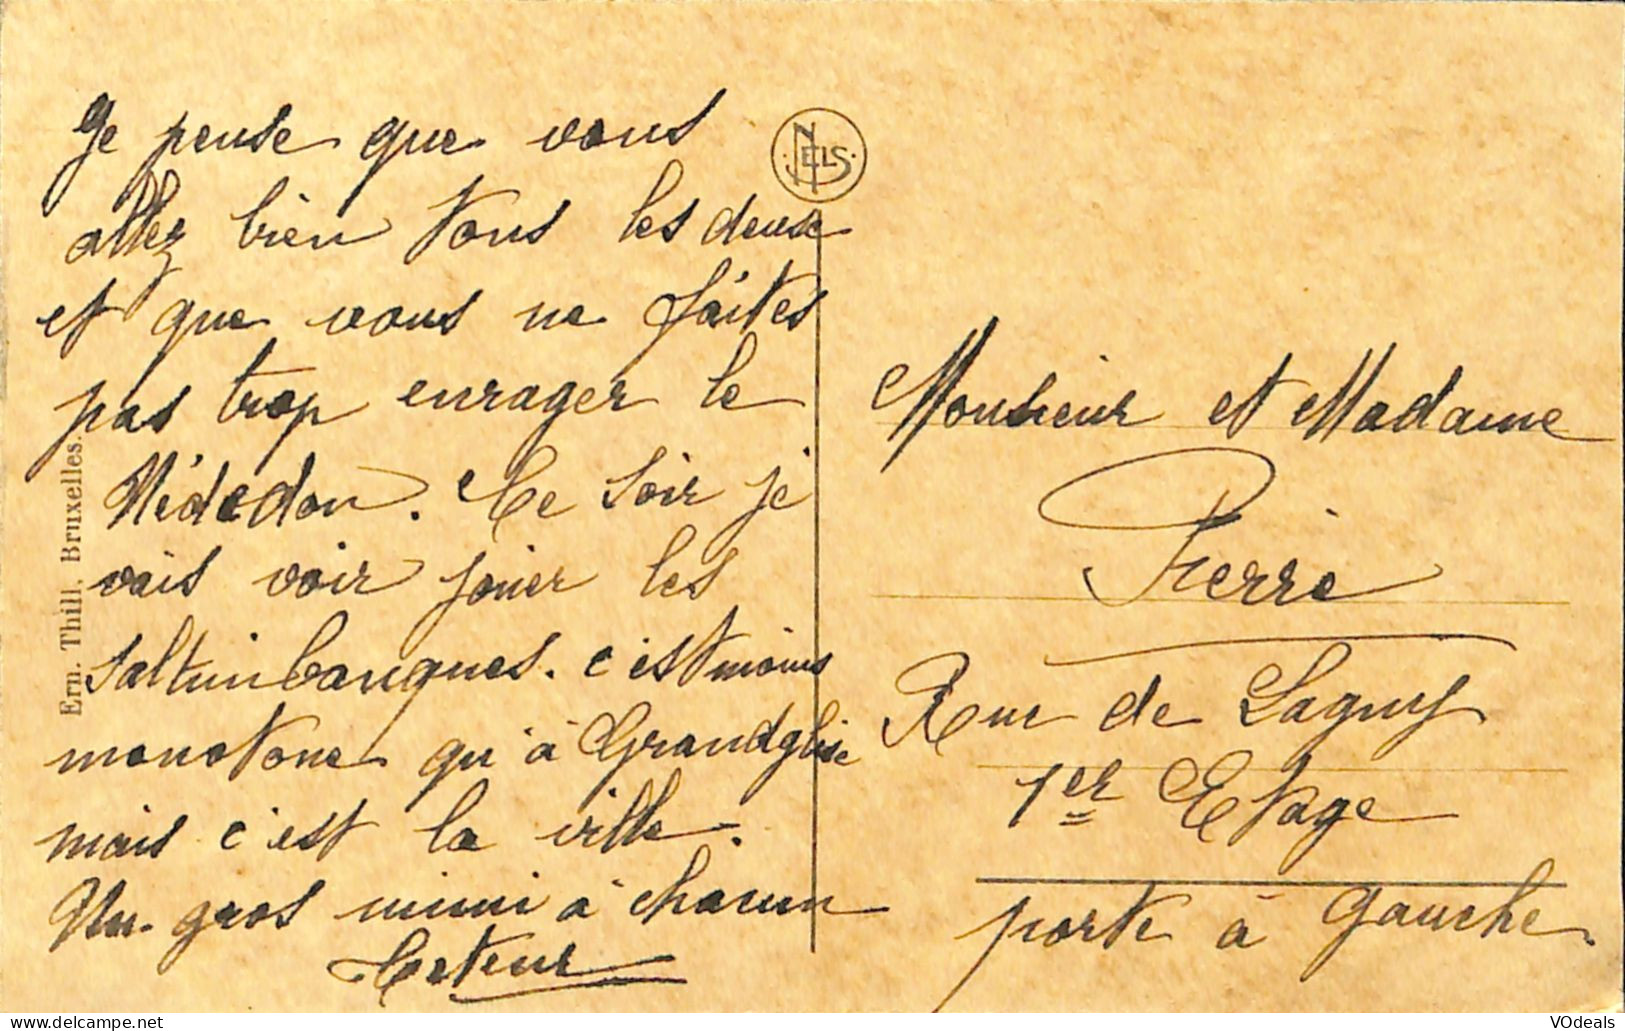 Je pense que vous
allez bien tous les deux
et que vous ne faites
pas trop enrager le
Médedon. Ce soir je
vais voir jouer les
saltimbanques. c'est moins
monotone qu'à Grandglise
mais c'est la ville.
Un gros mimi à chacun
NELS
Ern. Thill, Bruxelles.
Monsieur et Madame
Pierre
Rue de Lagny
1er Etage
porte à gauche
delcampe.net
VOdeals